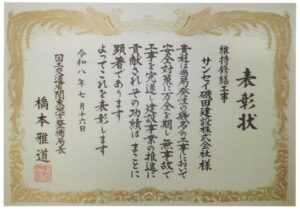 表彰状
維持修繕工事
サンセイ磯田建設株式会社様
貴社は当局発注の幾多の工事において
安全対策に万全を期し無事故で
工事を完遂し建設事業の推進に
貢献されその功績はまことに
顕著であります
よってこれを表彰します
令和八年七月十六日
国土交通省関東地方整備局長
橋本雅道